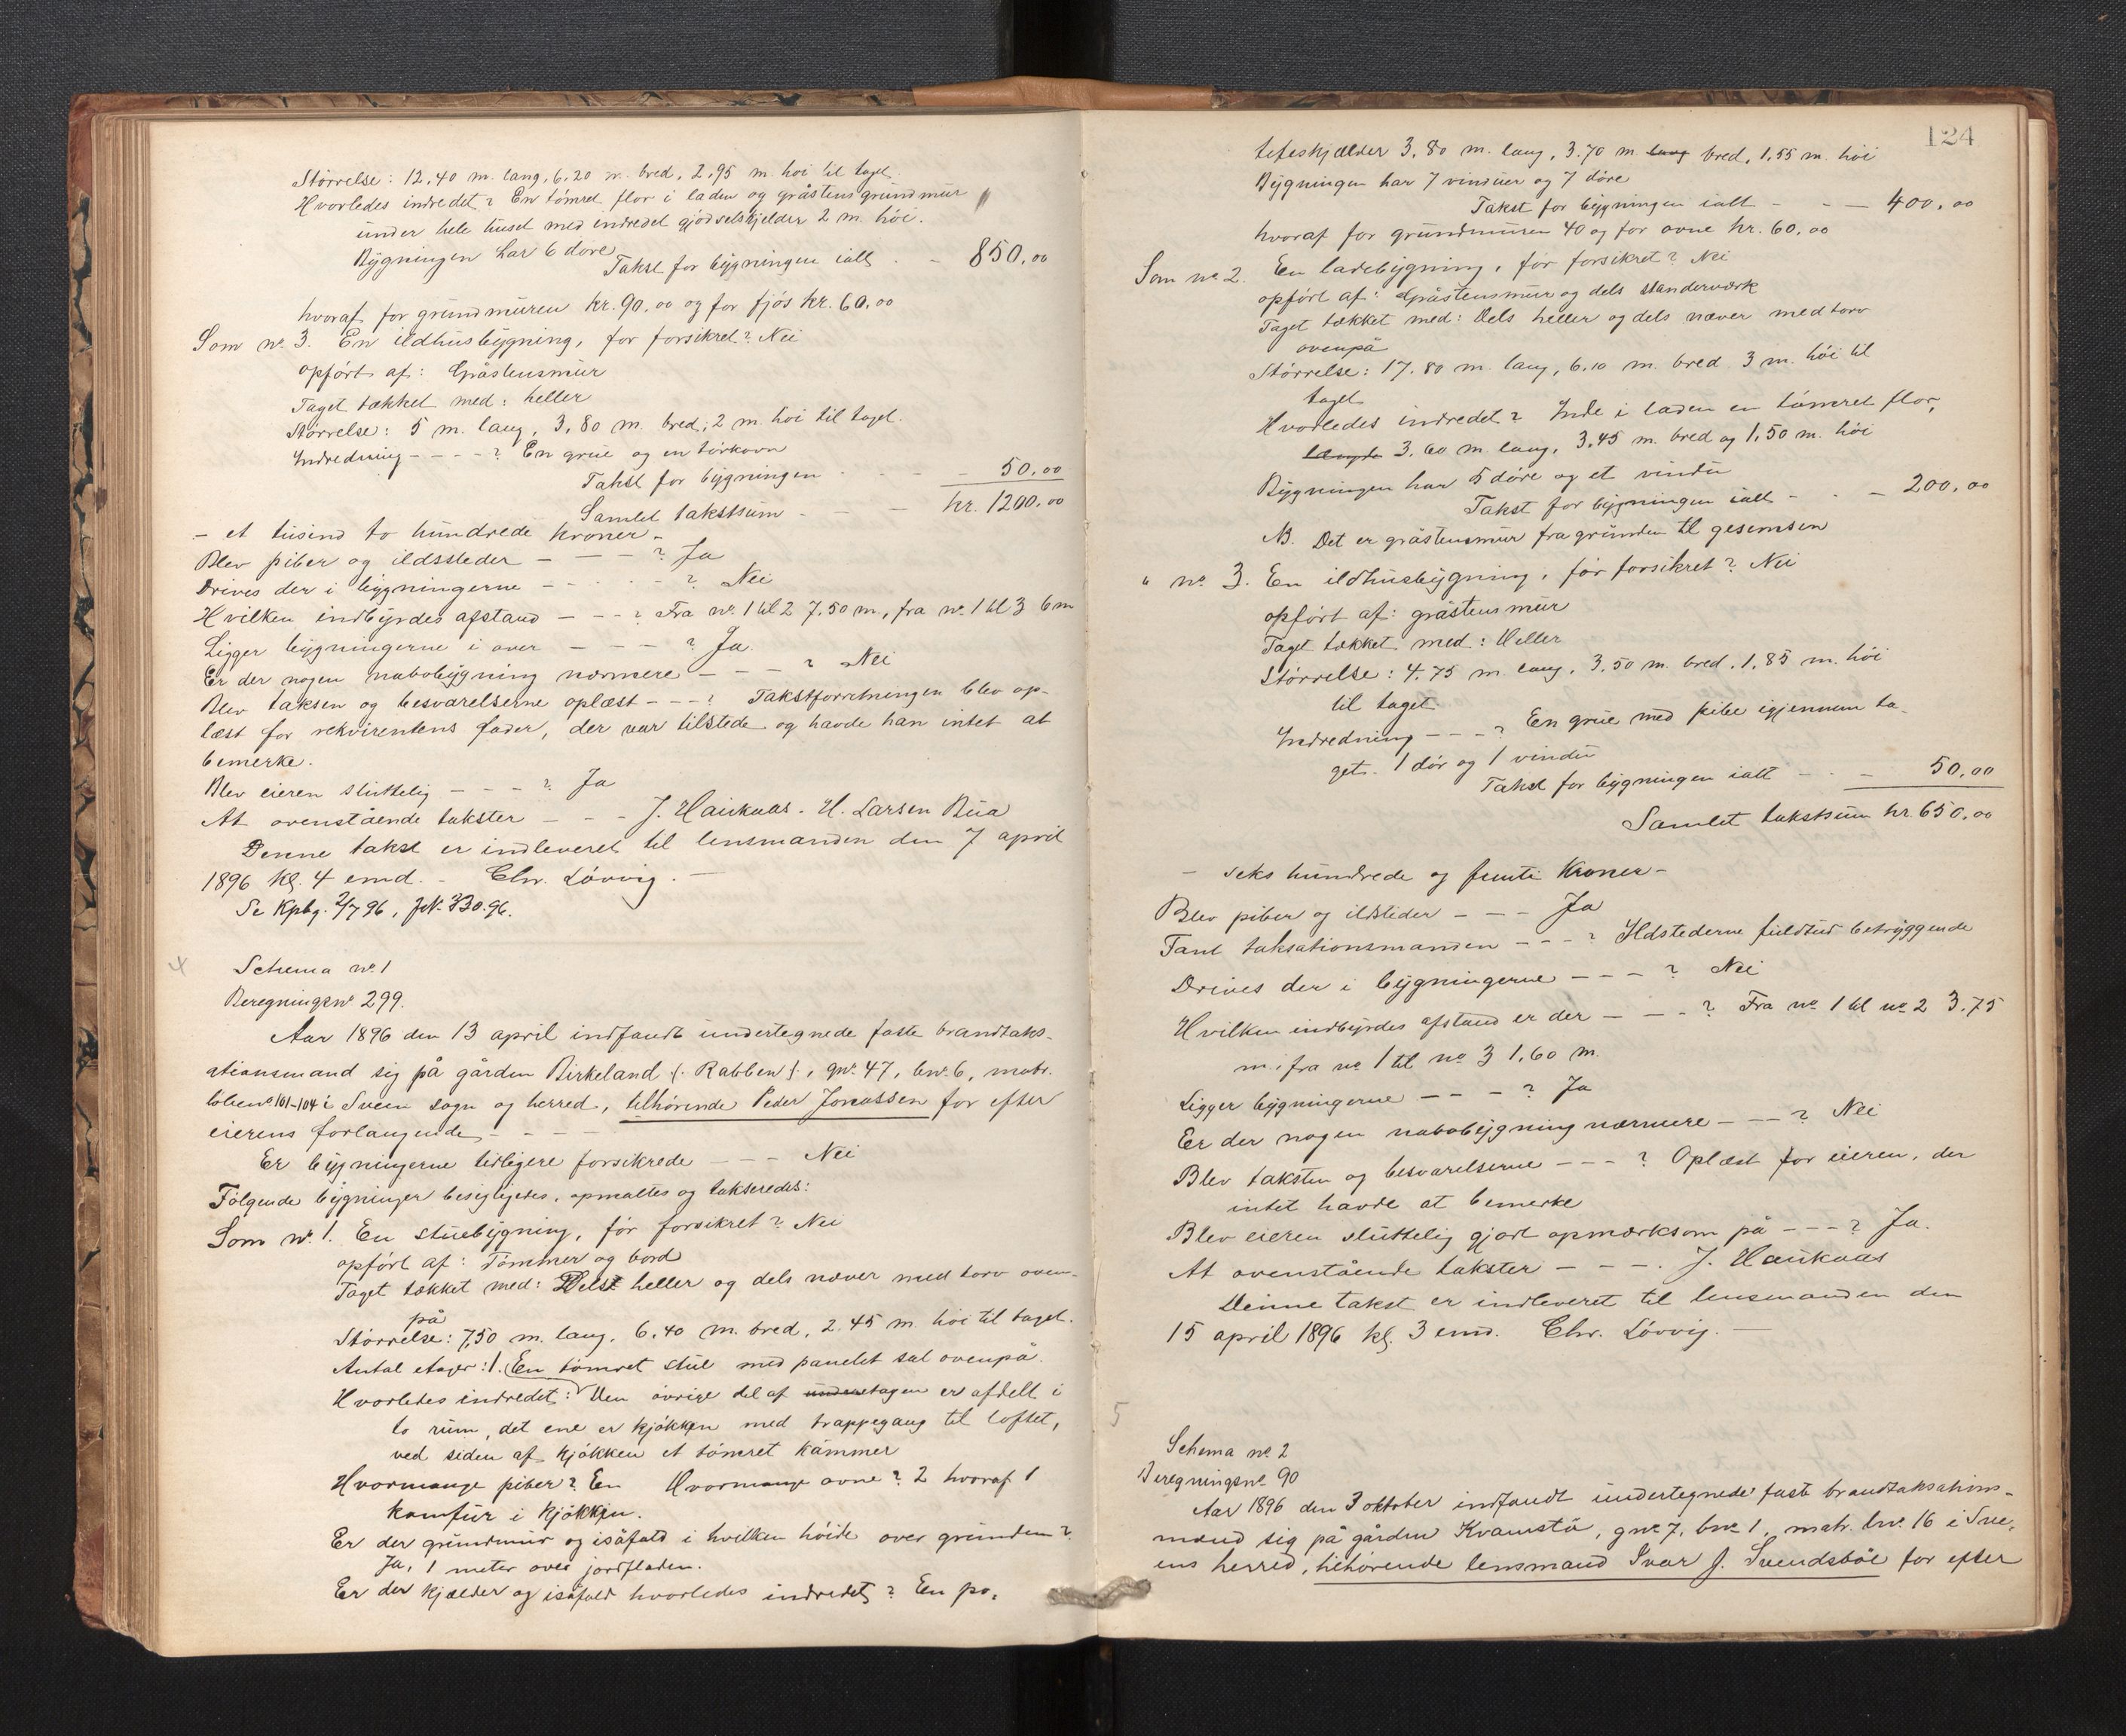 Størrelse: 12,40 m. lang, 6,20 m. bred, 2,95 m. høi til taget
Hvorledes indredet? En tømret flor i laden og gråstensgrundmur
under hele huset med indredet gjødselskjelder 2 m. høi.
Bygningen har 6 døre
Takst for bygningen ialt - - 850,00
hvoraf for grundmuren kr. 90,00 og for fjøs kr. 60,00
Som no. 3. En ildhusbygning, før forsikret? Nei
opført af: Gråstensmur
Taget tækket med: heller
Størrelse: 5 m. lang, 3,80 m. bred, 2 m. høi til taget.
Indredning - - - - ? En grue og en tørkovn
Takst for bygningen - - - - 50,00
Samlet takstsum - - - kr. 1200,00
- et tusind to hundrede kroner -
Blev piber og ildssteder - - - ? Ja
Drives der i bygningerne - - - - - ? Nei
Hvilken indbyrdes afstand - - - ? Fra no. 1 til 2 7,50 m., fra no. 1 til 3 6 m
Ligger bygningerne i over - - - ? Ja.
Er der nogen nabobygning nærmere - - - ? Nei
Blev taksen og besvarelserne oplæst - - - ? Takstforretningen blev op-
læst for rekvirentens fader, der var tilstede og havde han intet at
bemerke.
Blev eieren sluttelig - - - ? Ja
At ovenstående takster - - - J. Haukaas - H. Larsen Bua
Denne takst er indleveret til lensmanden den 7 april
1896 kl. 4 emd. - Chr. Løvvig. -
Se Kpbg. 2/7 96, JN. 330.96.
4
Schema no. 1
Beregningsno 299.
Aar 1896 den 13 april indfandt undertegnede faste brandtaks-
ationsmand sig på gården Birkeland (: Rabben :), gno. 47, bno. 6, matr.
løbeno 101-104 i Sveen sogn og herred, tilhørende Peder Jonassen for efter
eierens forlangende - - - -
Er bygningerne tidligere forsikrede - - - Nei
Følgende bygninger besigtigedes, opmaltes og takseredes:
Som no. 1. En stuebygning, før forsikret? Nei
opført af: Tømmer og bord
Taget tækket med: Dels heller og dels næver med torv oven-
på
Størrelse: 7,50 m. lang, 6,40 m. bred, 2,45 m. høi til taget.
Antal etager: 1. En tømret stue med panelet sal ovenpå.
Hvorledes indredet: Den øvrige del af underetagen er afdelt i
to rum, det ene er kjøkken med trappegang til loftet,
ved siden af kjøkken et tømret kammer
Hvormange piber? En Hvormange ovne? 2 hvoraf 1
komfur i kjøkken.
Er der grundmur og isåfald i hvilken høide over grunden?
Ja, 1 meter over jordfladen.
Er der kjælder og isåfald hvorledes indredet? En po-
124
teteskjælder 3,80 m. lang, 3,70 m. lang bred, 1,55 m. høi
Bygningen har 7 vinduer og 7 døre
Takst for bygningen ialt - - - 400,00
hvoraf for grundmuren 40 og for ovne kr. 60,00
Som no 2. En ladebygning, før forsikret? Nei
opført af: Gråstensmur og dels standerværk
Taget tækket med: Dels heller og dels næver med torv
ovenpå
Størrelse: 17,80 m. lang, 6,10 m. bred 3 m. høi til
taget
Hvorledes indredet? Inde i laden en tømret flor,
længde 3,60 m. lang, 3,45 m. bred og 1,50 m. høi
Bygningen har 5 døre og et vindu
Takst for bygningen ialt - - - 200,00
NB. Det er gråstensmur fra grunden til gesemsen
" no. 3. En ildhusbygning, før forsikret? Nei
opført af: gråstensmur
Taget tækket med: Heller
Størrelse: 4,75 m lang, 3,50 m. bred, 1,85 m. høi
til taget
Indredning - - - ? En grue med pibe igjennem ta-
get. 1 dør og 1 vindu
Takst for bygningen ialt - - - 50,00
Samlet takstsum kr. 650,00
- seks hundrede og femti Kroner -
Blev piber og ildsteder - - - Ja
Fant taksationsmanden - - - ? Ildstederne fuldtud betryggende
Drives der i bygningerne - - - ? Nei
Hvilken indbyrdes afstand er der - - - ? Fra no 1 til no. 2 3,75
m, fra no. 1 til no. 3 1,60 m.
Ligger bygningerne - - - ? Ja
Er der nogen nabobygning nærmere - - - ? Nei
Blev taksten og besvarelserne - - - ? Oplæst for eieren, der
intet havde at bemerke
Blev eieren sluttelig gjort opmærksom på - - - ? Ja.
At ovenstående takster - - - . J. Haukaas
Denne takst er indleveret til lensmanden den
15 april 1896 kl. 3 emd. Chr. Løvvig. -
5
Schema no. 2
Beregningsno. 90
Aar 1896 den 3 oktober indfandt undertegnede faste brandtaksations-
mænd sig på gården Kvamstø, gno 7, bno 1, matr. lno. 16 i Sve-
ens herred, tilhørende lensmand Ivar J. Svendsbøe for efter